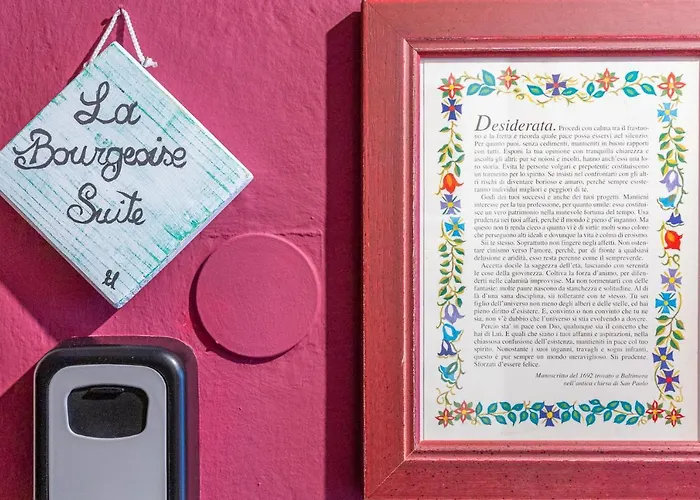 La
Bourgeoise
Suite
Desiderata. Procedi con calma tra il frastuo-
no e la fretta e ricorda quale pace possa esservi nel silenzio.
Per quanto puoi, senza cedimenti, mantieniti in buoni rapporti
con tutti. Esponi la tua opinione con tranquilla chiarezza e
ascolta gli altri: pur se noiosi e incolti, hanno anch'essi una loro
storia. Evita le persone volgari e prepotenti: costituiscono
un tormento per lo spirito. Se insisti nel confrontarti con gli altri
rischi di diventare borioso e amaro, perché sempre esiste-
ranno individui migliori e peggiori di te.
Godi dei tuoi successi e anche dei tuoi progetti. Mantieni
interesse per la tua professione, per quanto umile: essa costitui-
sce un vero patrimonio nella mutevole fortuna del tempo. Usa
prudenza nei tuoi affari, perché il mondo è pieno d'inganno. Ma
questo non ti renda cieco a quanto vi è di virtù: molti sono coloro
che perseguono alti ideali e dovunque la vita è colma di eroismo.
Sii te stesso. Soprattutto non fingere negli affetti. Non osten-
tare cinismo verso l'amore, perché, pur di fronte a qualsiasi
delusione e aridità, esso resta perenne come il sempreverde.
Accetta docile la saggezza dell'età, lasciando con serenità
le cose della giovinezza. Coltiva la forza d'animo, per difen-
derti nelle calamità improvvise. Ma non tormentarti con delle
fantasie: molte paure nascono da stanchezza e solitudine. Al di
là d'una sana disciplina, sii tollerante con te stesso. Tu sei
figlio dell'universo non meno degli alberi e delle stelle, ed hai
pieno diritto d'esistere. E, convinto o non convinto che tu ne
sia, non v'è dubbio che l'universo si stia evolvendo a dovere.
Perciò sta' in pace con Dio, qualunque sia il concetto che
hai di Lui. E quali che siano i tuoi affanni e aspirazioni, nella
chiassosa confusione dell'esistenza, mantieniti in pace col tuo
spirito. Nonostante i suoi inganni, travagli e sogni infranti,
questo è pur sempre un mondo meraviglioso. Sii prudente.
Sforzati d'essere felice.
Manoscritto del 1692 trovato a Baltimora
nell'antica chiesa di San Paolo